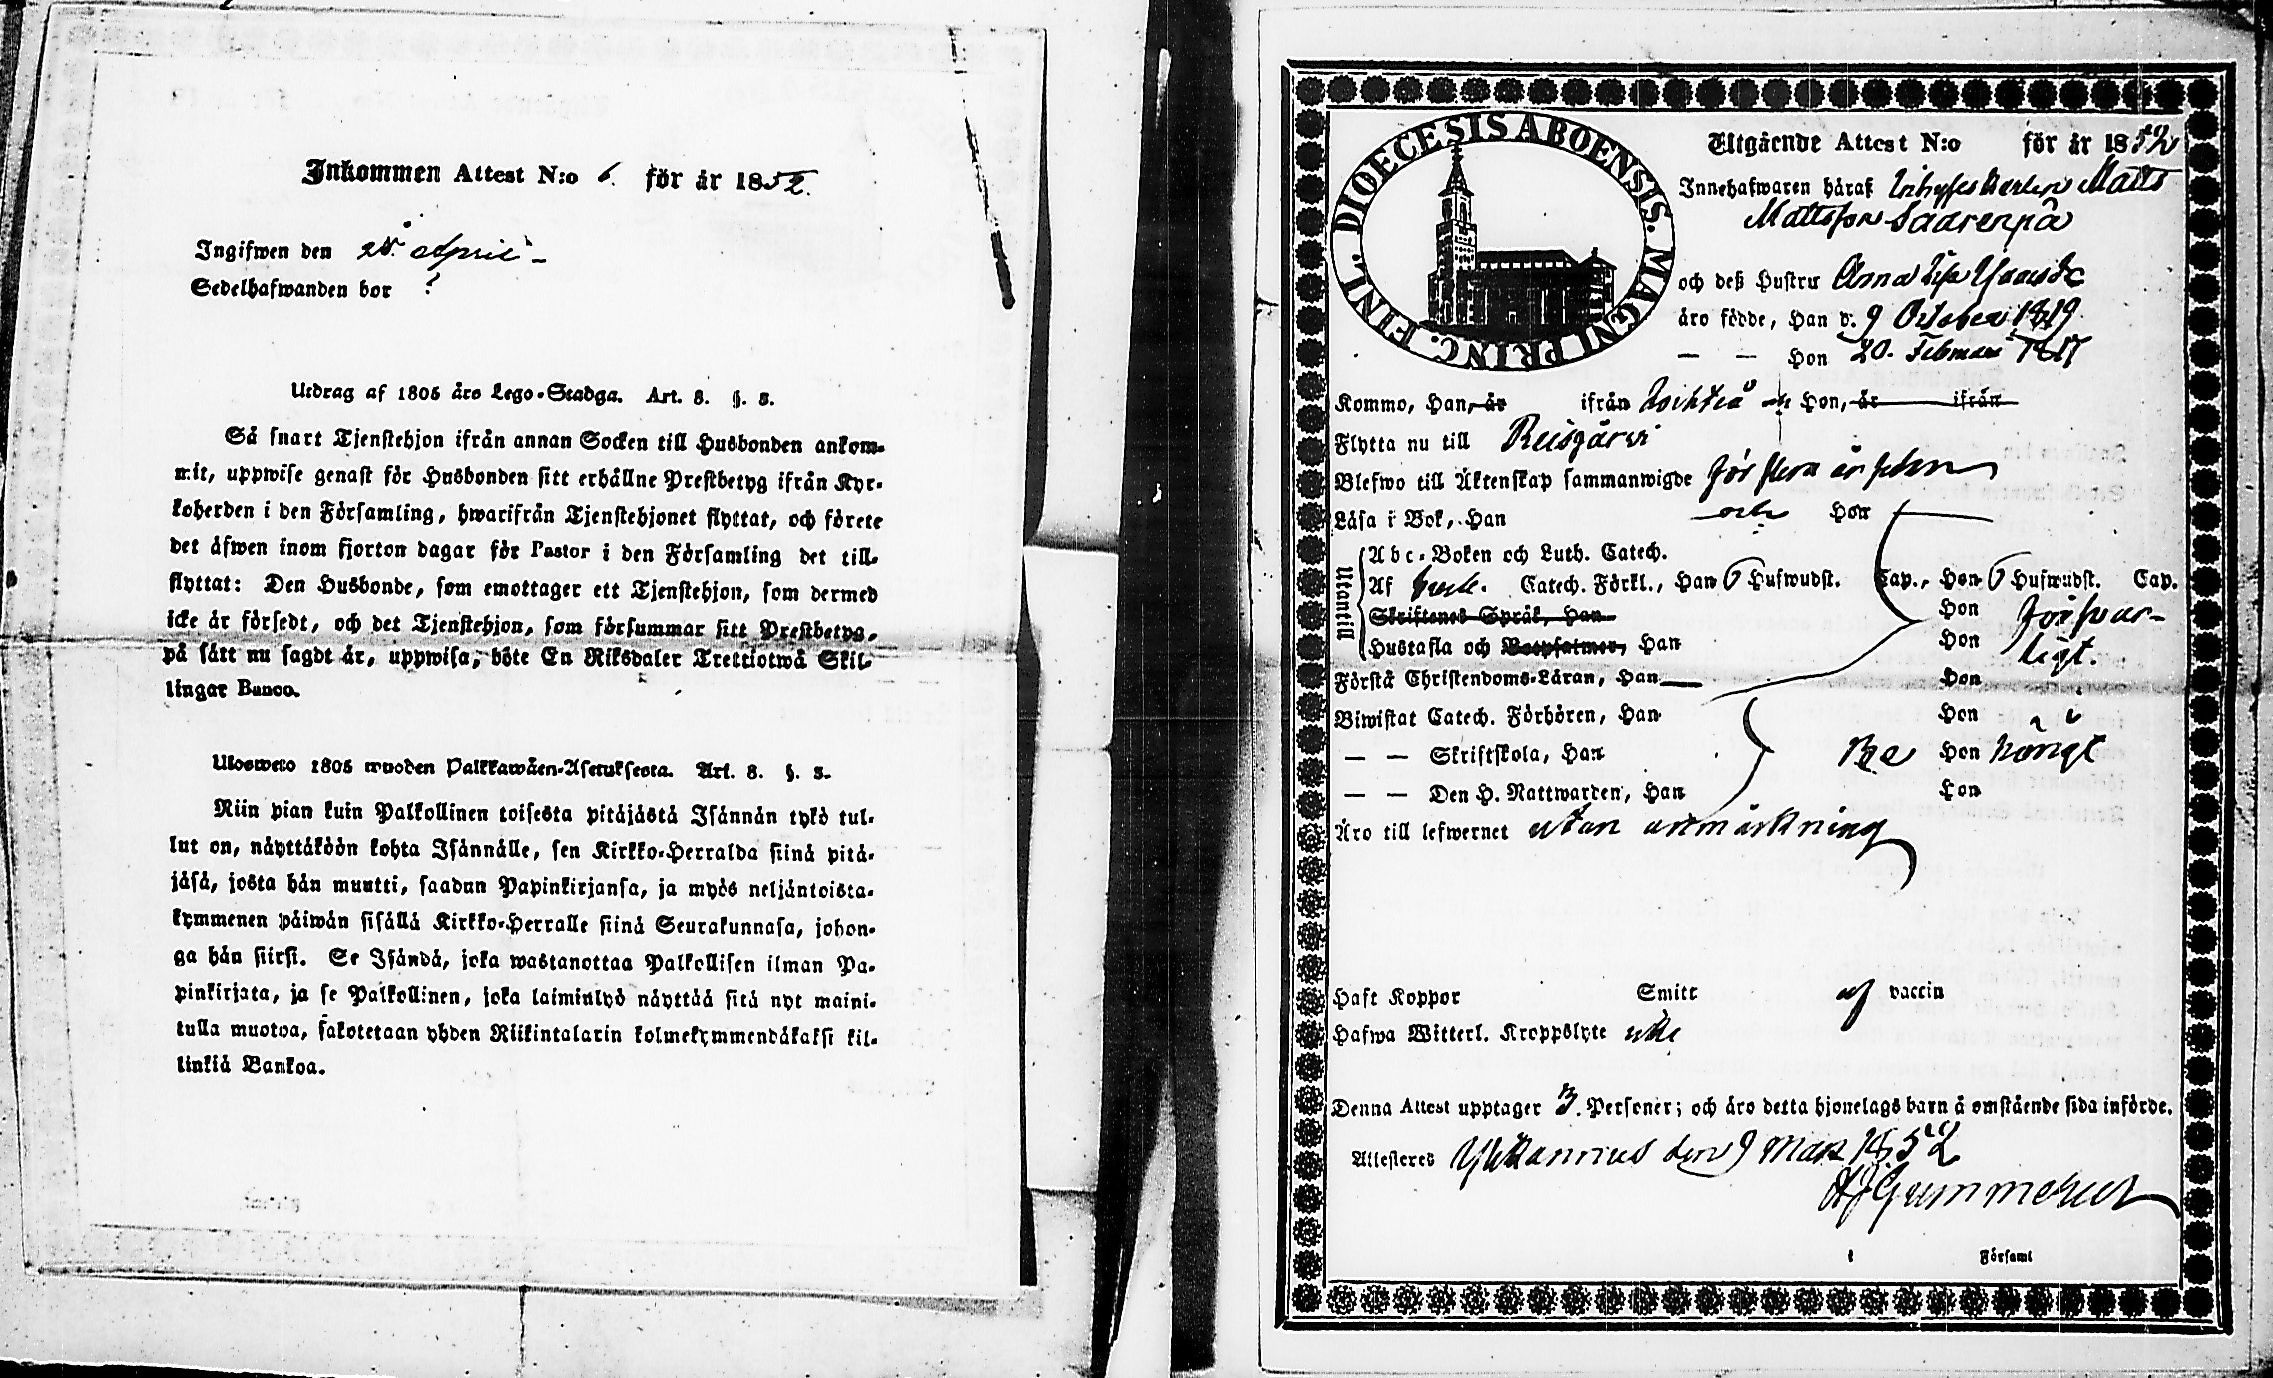 Inkommen Attest N:o 6. för år 1852.
Ingifwen den 25. April
Sedelhafwanden bor ?
Utdrag af 1805 års Lego-Stadga. Art. 8. §. 5.
Så snart Tjenstehjon ifrån annan Socken till Husbonden ankom-
mit, uppwise genast för Husbonden sitt erhållne Prestbetyg ifrån Kyr-
koherden i den Församling, hwarifrån Tjenstehjonet flyttat, och förete
det äfwen inom fjorton dagar för Pastor i den Församling det till-
flyttat: Den Husbonde, som emottager ett Tjenstehjon, som dermed
icke är försedt, och det Tjenstehjon, som försummar sitt Prestbetyg,
på sätt nu sagdt är, uppwisa, böte En Riksdaler Trettiotwå Skil-
lingar Banco.
Ulosweto 1805 wuoden Palkkawäen-Asetuksesta. Art. 8. §. 5.
Niin pian kuin Palkollinen toisesta pitäjästä Isännän tykö tul-
lut on, näyttäköön kohta Isännälle, sen Kirkko-Herralda siinä pitä-
jäsä, josta hän muutti, saadun Papinkirjansa, ja myös neljäntoista-
kymmenen päiwän sisällä Kirkko-Herralle siinä Seurakunnasa, johon-
ga hän siirsi. Se Isändä, joka wastanottaa Palkollisen ilman Pa-
pinkirjata, ja se Palkollinen, joka laiminlyö näyttää sitä nyt maini-
tulla muotoa, sakotetaan yhden Riikintalarin kolmekymmendäkaksi kil-
linkiä Bankoa.
DIOECESIS ABOENSIS. MAGNI PRINC. FINL.
Utgående Attest N:o för år 1852
Innehafwaren häraf Matts
Mattsson Saarenpä
och deß Hustru Anna Lisa
äro födde, Han d. 9 October 1819
— — Hon 20. Februari 1817
Kommo, Han, år ifrån Lohteå Hon, år ifrån
Flytta nu till Reisjärvi
Blefwo till Äktenskap sammanwigde för flera år sedan
Läsa i Bok, Han och Hon
Utantill
Abc-Boken och Luth. Catech.
Af Catech. Förkl., Han 6 Hufwudst. Cap., Hon 6 Hufwudst. Cap.
Skriftenes Språk, Han Hon försvar-
Hustafla och Botpsalmer, Han Hon ligt.
Förstå Christendoms-Läran, Han Hon
Biwistat Catech. Förhören, Han Hon
— — Skriftskola, Han Hon
— — Den H. Nattwarden, Han Hon
Äro till lefwernet utan anmärkning
Haft Koppor Smitt af vaccin
Hafwa Witterl. Kroppslyte icke
Denna Attest upptager 3. Personer; och äro detta hjonelags barn å omstående sida införde.
Attesteres Ylikannus den 9 Mars 1852
HJGummerus
i Församl